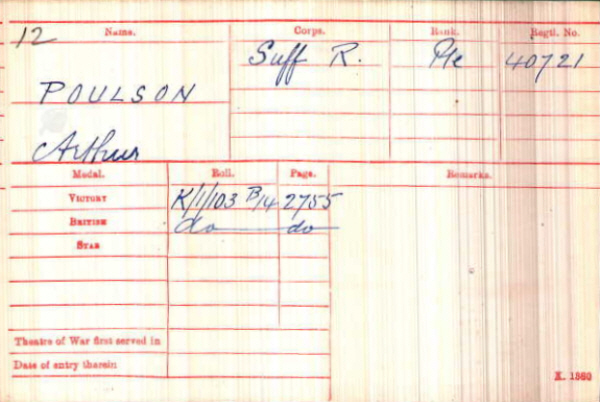 12 Name. Corps. Rank. Regtl. No.
Suff R. Pte 40721
POULSON
Arthur
Medal. Roll. Page. Remarks.
VICTORY K/1/103 B14 2755
BRITISH do do
STAR
Theatre of War first served in
Date of entry therein
K. 1380